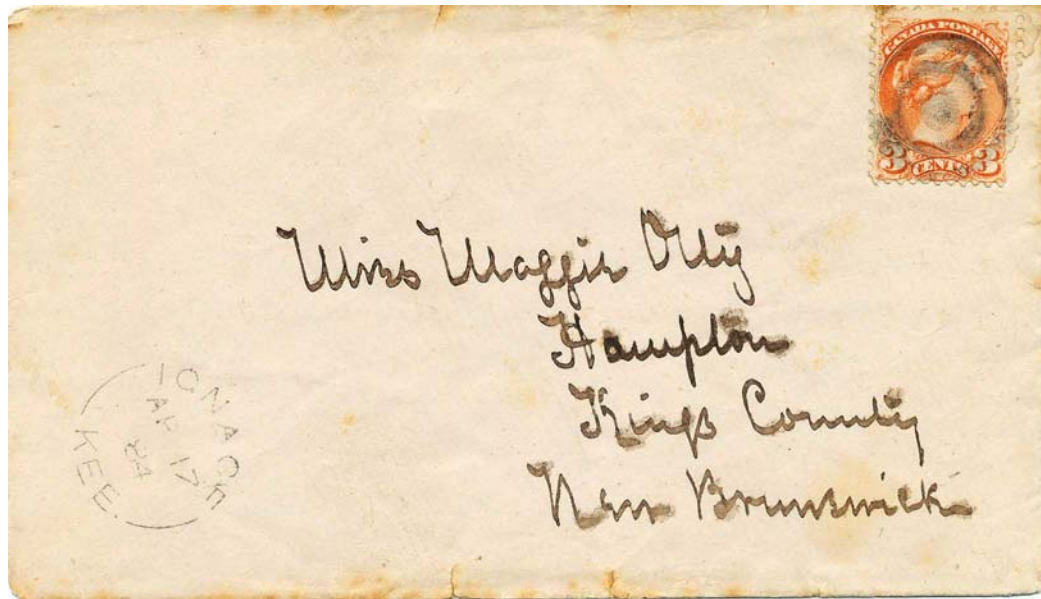 CANADA POSTAGE
3 CENTS 3
Miss Maggie Otty
Hampton
Kings County
New Brunswick
IGNACE
AP 17
84
KEE.